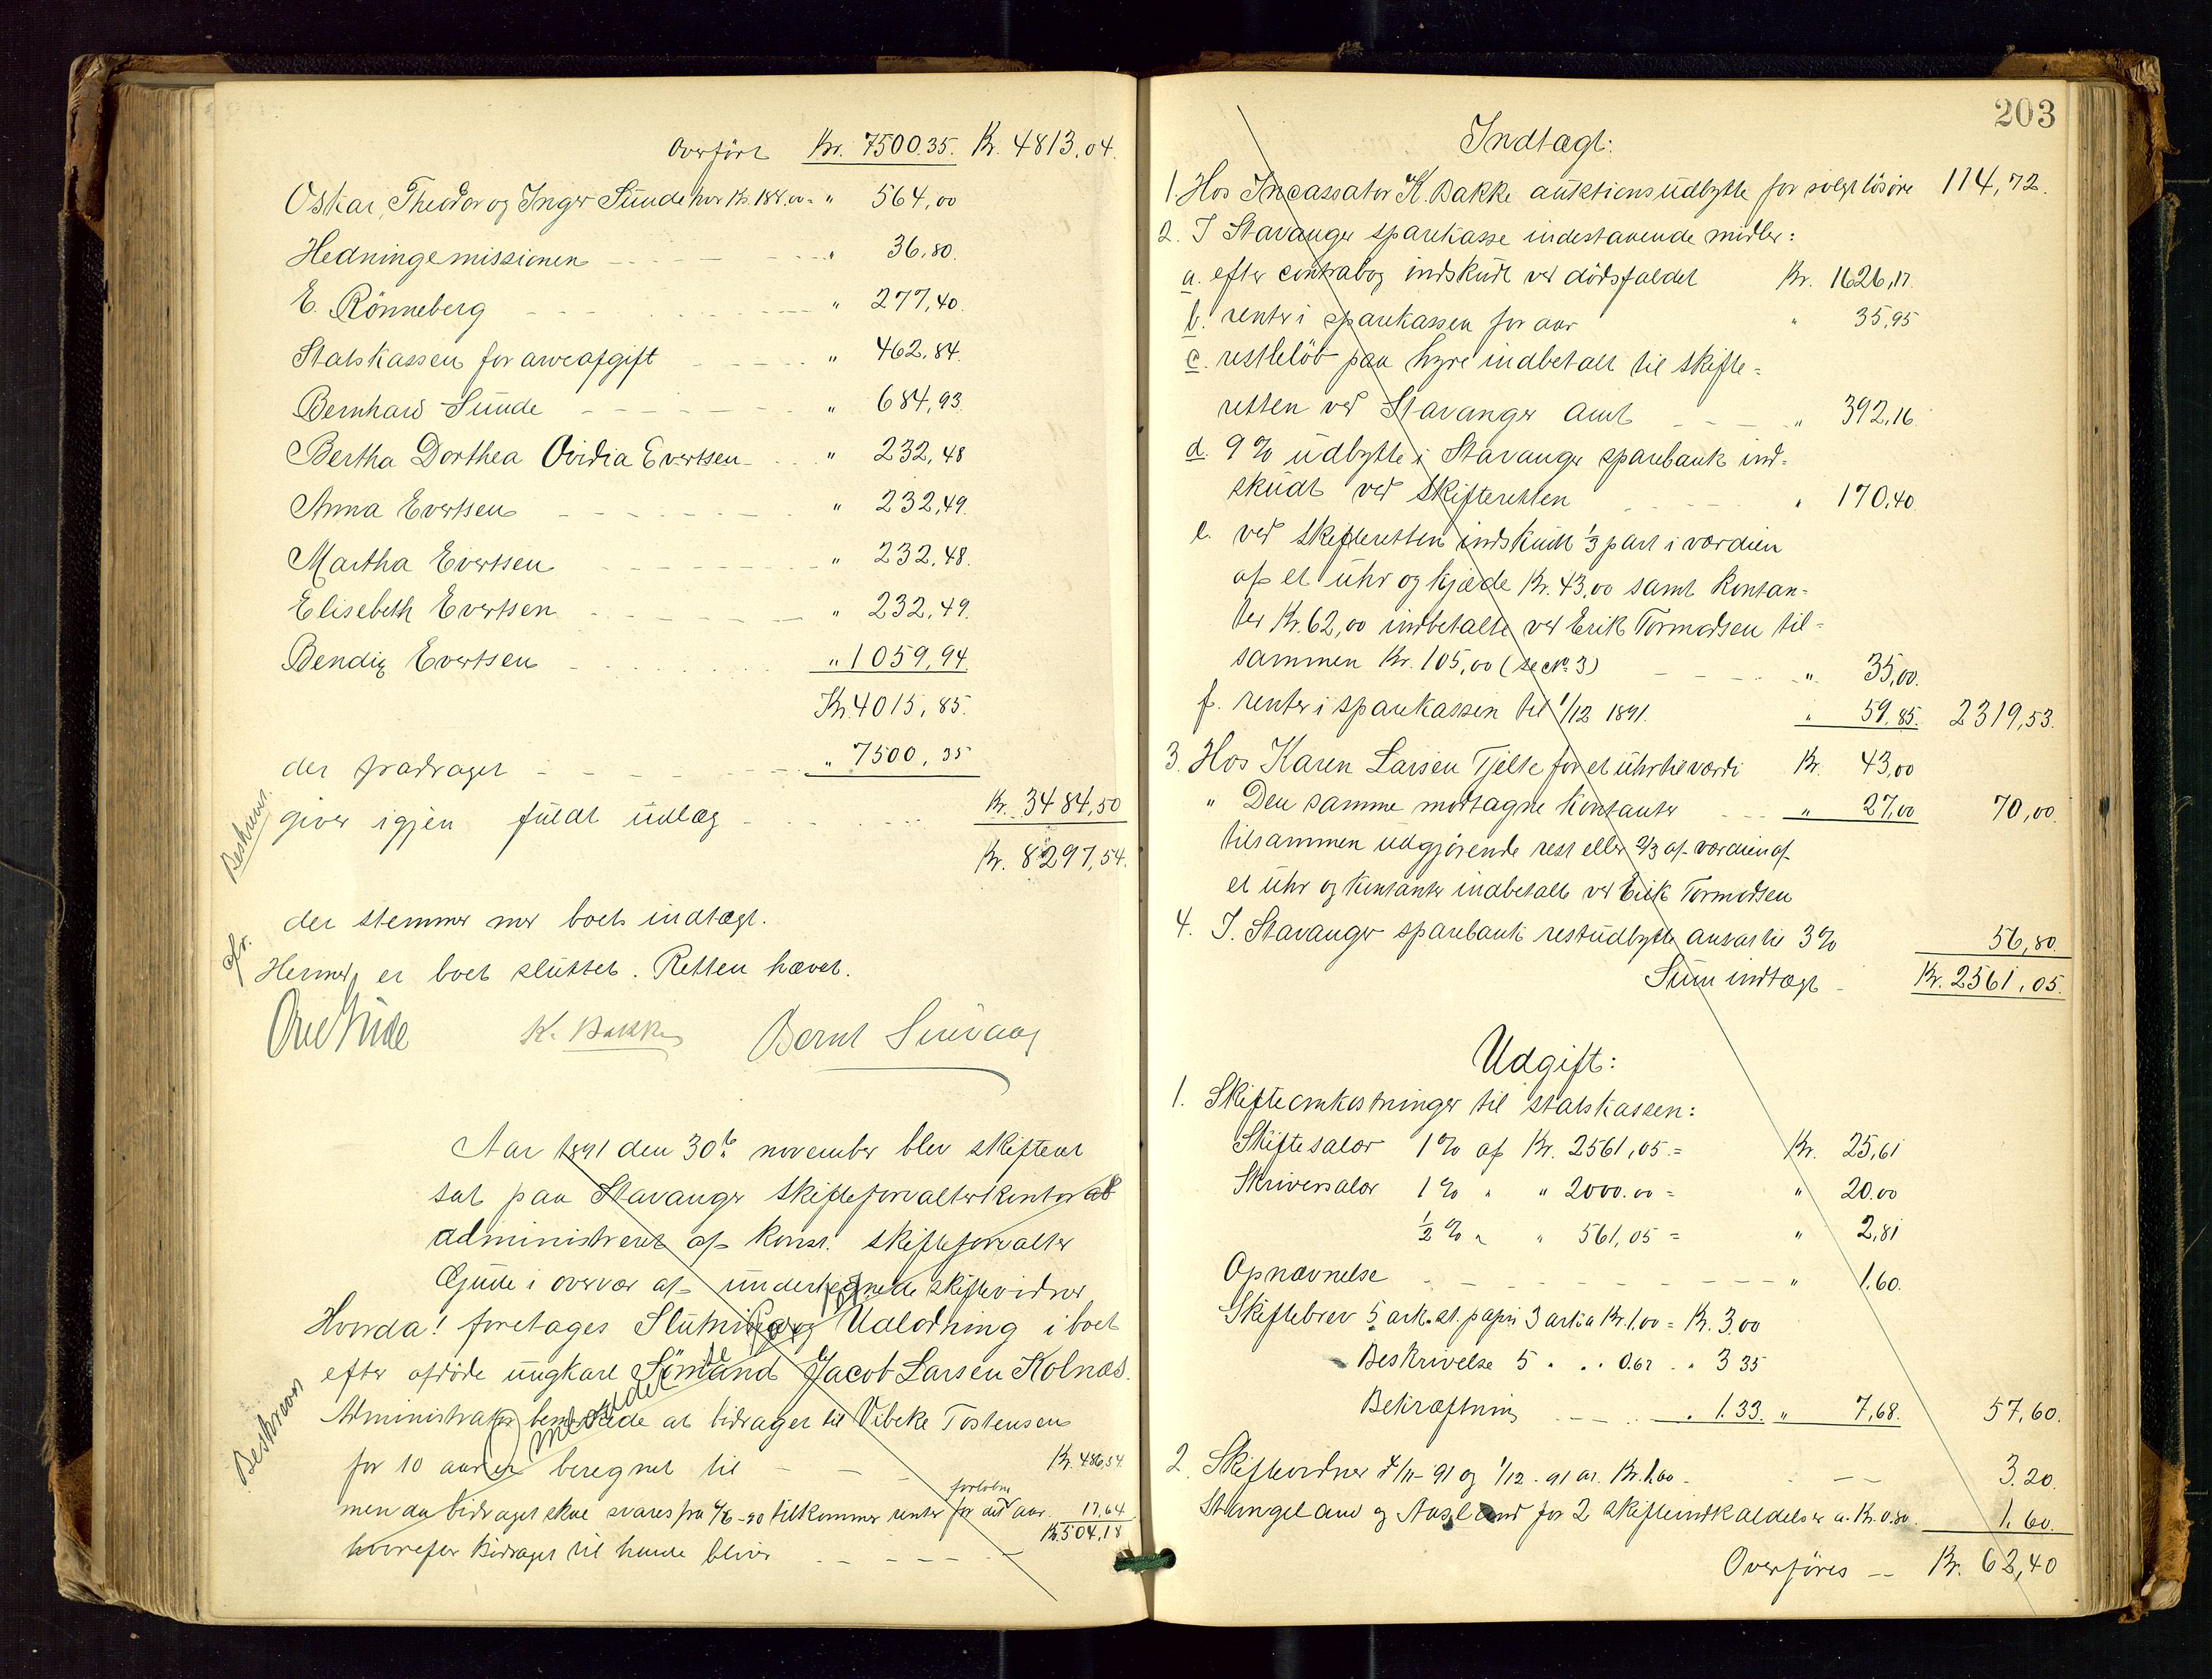 Overført Kr. 7500.35. Kr. 4813.04.
Oskar, Theodor og Inger Sunde hver Kr. 188.00 = " 564,00
Hedningemissionen " 36,80.
E. Rönneberg " 277,40.
Statskassen for arveafgift " 462,84.
Bernhard Sunde " 684,93
Bertha Dorthea Ovidia Evertsen " 232,48
Anna Evertsen " 232,49.
Martha Evertsen " 232,48.
Elisebeth Evertsen " 232,49.
Bendig Evertsen " 1059,94.
Kr. 4015,85.
der fradraget " 7500,35
giver igjen fuldt udlæg Kr. 3484,50
Kr. 8297,54.
Beskrevet.
der stemmer med boets indtægt.
cfr.
Hermed er boet sluttet. Retten hævet.
K. Bakke Bernt
Aar 1891 den 30te november blev skifteret
sat paa Stavanger skifteforvalterkontor at
administreret af konst. skifteforvalter
Gude i overvær af undertegnede skiftevidner
Hvorda! foretages Slutning og Udlodning i boet
efter afdøde ungkarl Sømand Jacob Larsen Kolnæs.
Beskrevet
Administrator bemærkede at bidraget til Vibeke Tostensen
meddelt
for 10 aar er beregnet til Kr. 486,54
men da bidraget skal svares fra 4/6-90 tilkommer renter for det forløbne aar 17,64
hvorefter Bidraget til hende bliver Kr. 504,18
203
Indtægt:
1. Hos Incassator K. Bakke auktionsudbytte for solgt løsøre 114,72.
2. I Stavanger sparekasse indestaaende midler:
a. efter contrabog indskudt ved dødsfaldet Kr. 1626,17.
b. renter i sparekassen for aar " 35,95
c. restbeløb paa hyre indbetalt til skifte=
retten ved Stavanger amt " 392,16.
d. 9% udbytte i Stavanger sparebank ind=
skudt ved skifteretten " 170,40.
e. ved skifteretten indskudt 1/3 part i værdien
af et uhr og kjæde Kr. 43,00 samt kontan=
ter Kr. 62,00 indbetalte ved Erik Tormodsen til=
sammen Kr. 105,00 (se No. 3) " 35,00.
f. renter i sparekassen til 1/12 1891. " 59,85. 2319,53.
3. Hos Karen Larsen Tjelte for et uhr til værdi Kr. 43,00
" Den samme modtagne kontanter " 27,00 70,00.
tilsammen udgjørende rest eller 2/3 af værdien af
et uhr og kontanter indbetalt ved Erik Tormodsen
4. I. Stavanger sparebank restudbytte ansat til 3% 56,80.
Sum indtægt Kr. 2561,05.
Udgift:
1. Skifteomkostninger til statskassen:
Skiftesalær 1% af Kr. 2561,05.= Kr. 25,61
Skriversalær 1% " " 2000.00 = " 20.00
1/2 % " " 561,05 = " 2,81
Opnævnelse " 1.60.
Skiftebrev 5 ark. st. papir 3 ark a Kr. 1.00 = Kr. 3.00
Beskrivelse 5 " " 0.67 " " 3 35
Bekræftning " 1.33. " 7,68. 57,60.
2. Skiftevidner 7/11-91 og 1/12-91 a. Kr. 1.60 3.20.
Stangeland og Aasland for 2 skifteindkaldelser a. Kr. 0.80. 1.60.
Overføres Kr. 62,40